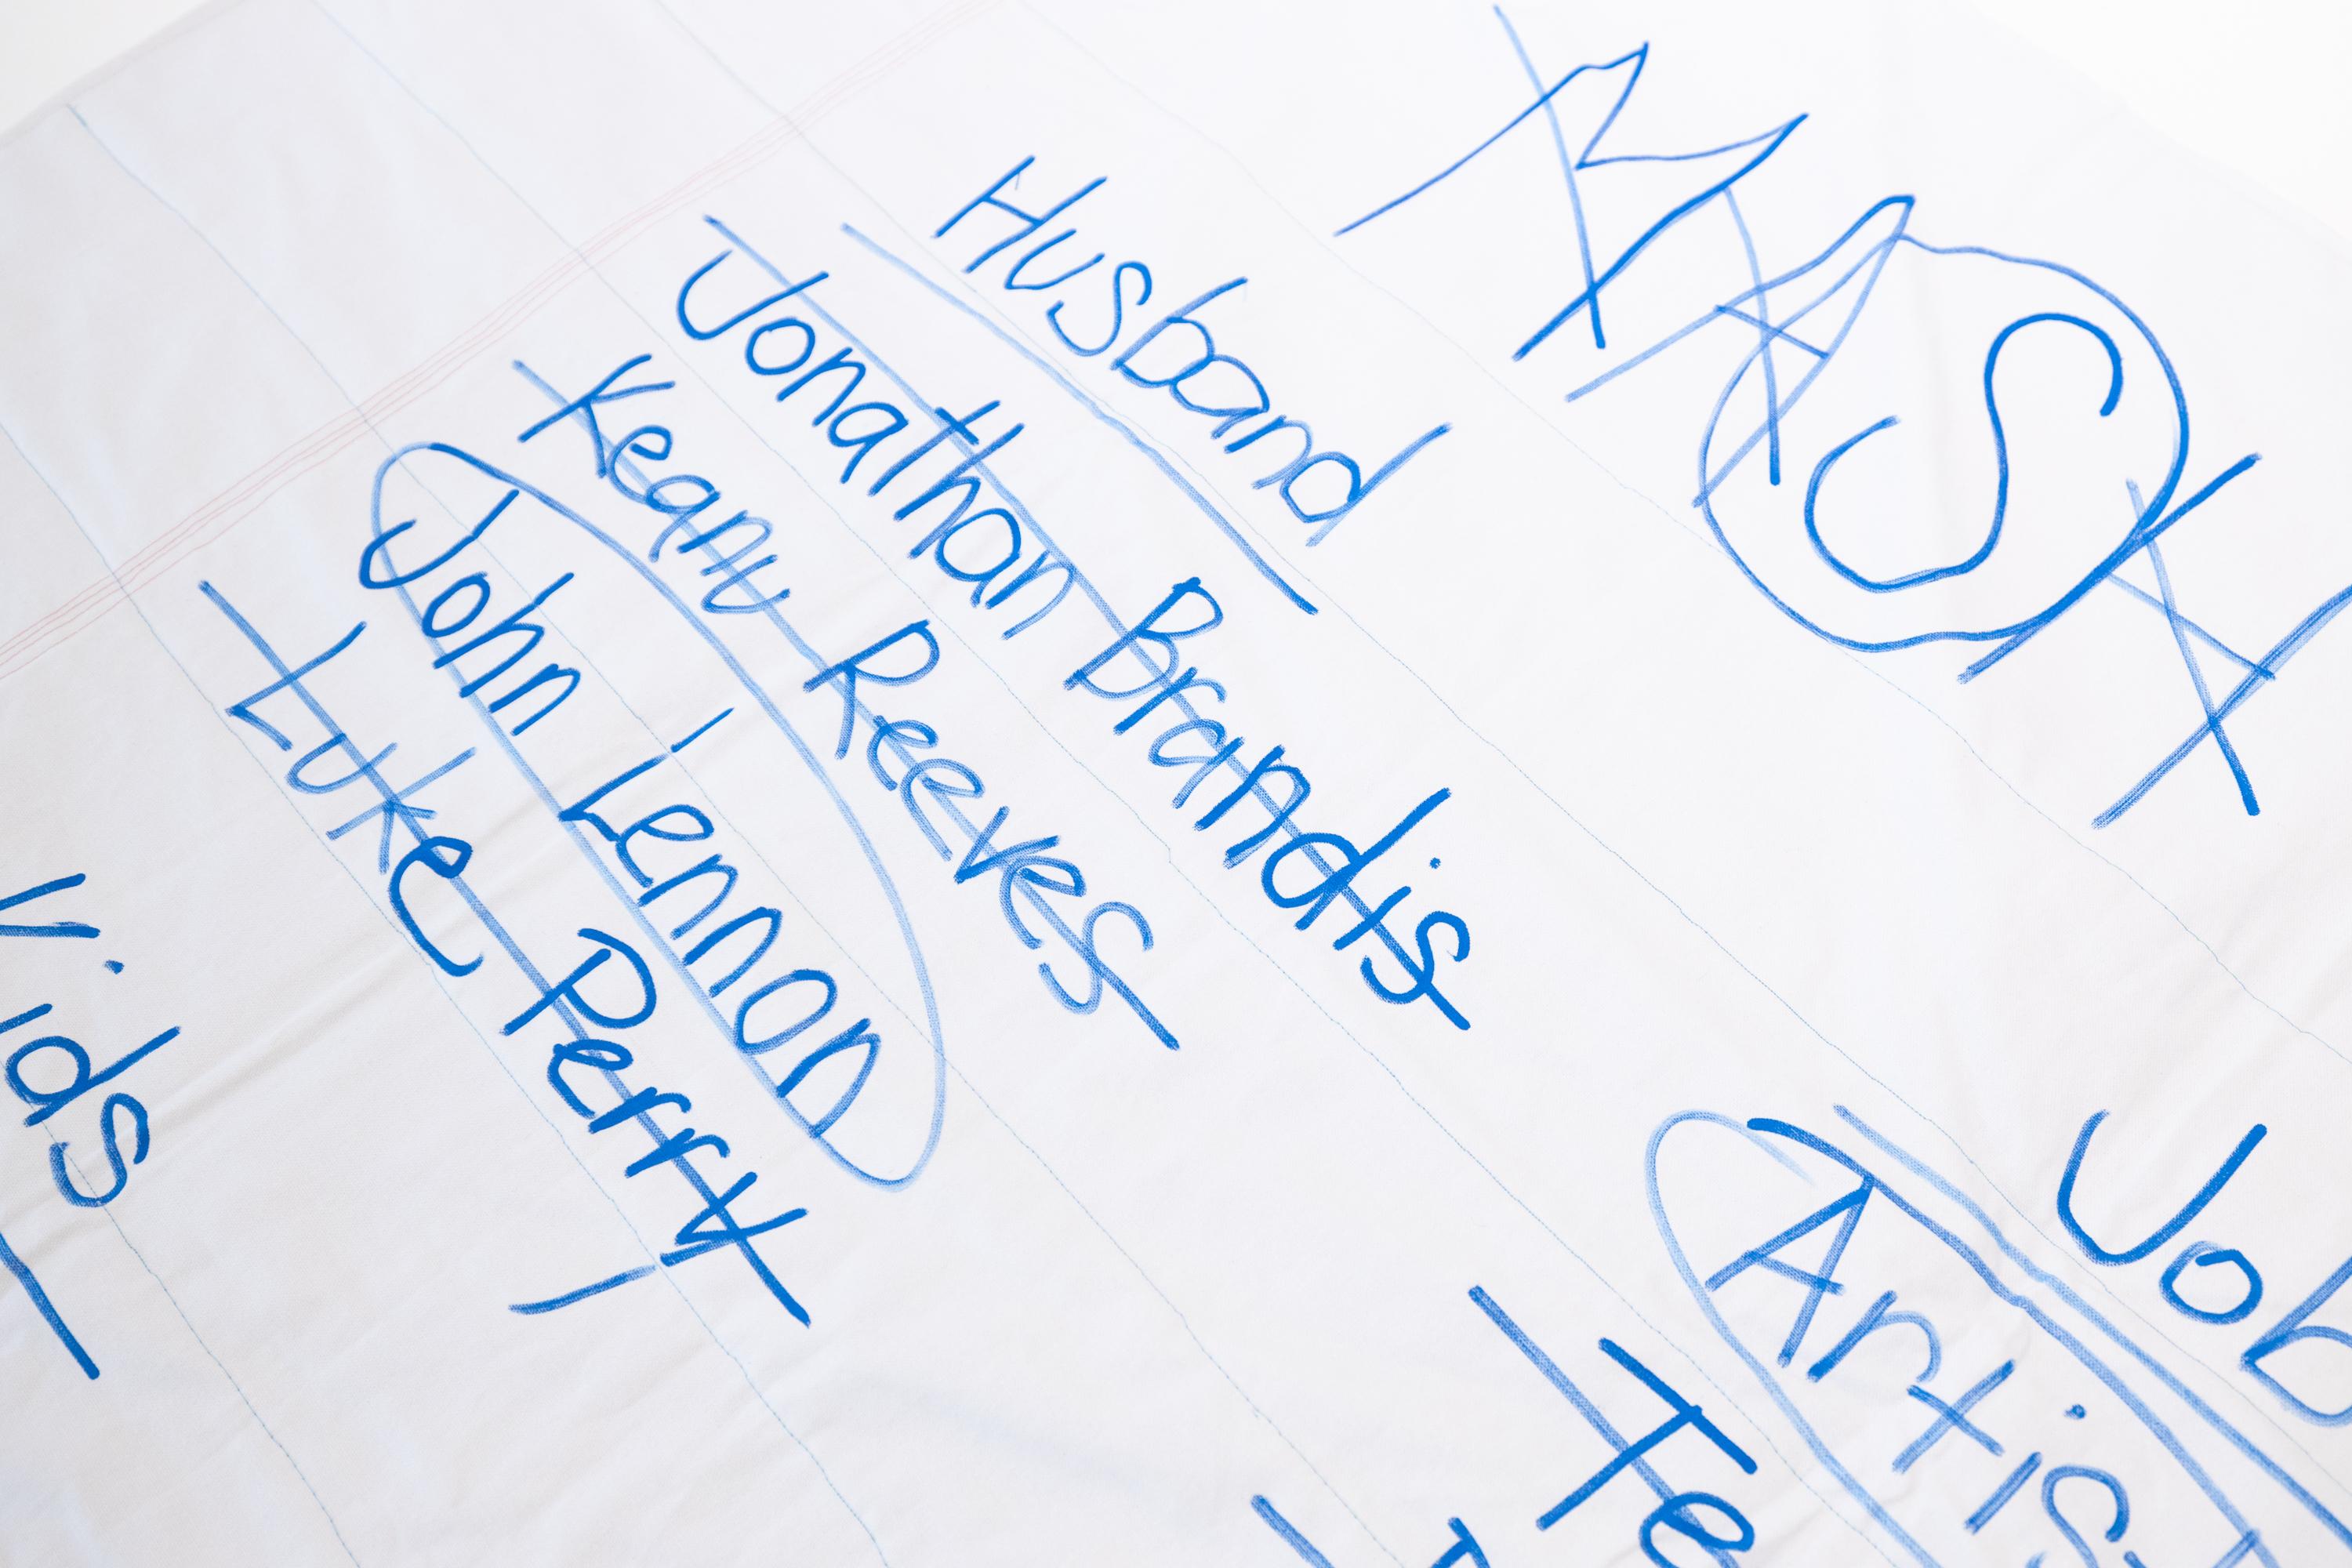 MASH
Husband
Jonathan Brandis
Keanu Reeves
John Lennon
Luke Perry
Job
Artist
Kids